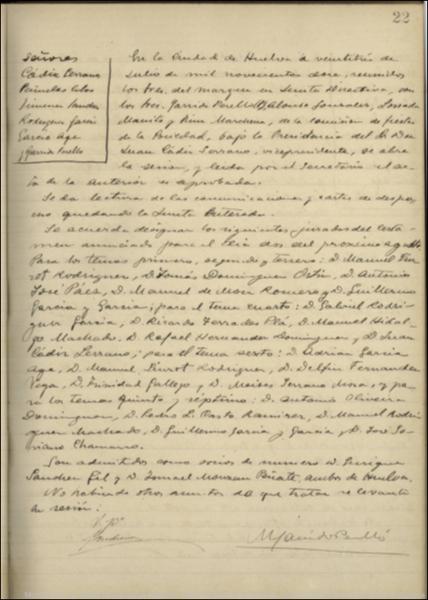 22
Señores
Cádiz Serrano
Peñuelas Cobos
Jimenez Sanchez
Rodriguez García
García Aga
y Garrido Perelló
En la Ciudad de Huelva a veintitrés de
Julio de mil novecientos doce, reunidos
los Sres. del margen en Junta Directiva, con
los Sres. Garrido Perelló, Alonso Gonzalez, Losada
Manito y Marchena, de la Comision de fiestas
de la Sociedad, bajo la Presidencia del Sr. Don
Juan Cádiz Serrano, vicepresidente, se abre
la sesion, y leida por el Secretario el ac-
ta de la anterior es aprobada.
Se da lectura de las comunicaciones y cartas de despa-
cho quedando la Junta enterada.
Se acuerda designar los siguientes jurados del certa-
men anunciado para el dia dos del proximo agosto
Para los temas primero, segundo y tercero: D. Manuel Siu-
rot Rodriguez, D. Tomás Dominguez Ortiz, D. Antonio
José Páez, D. Manuel de Mora Romero y D. Guillermo
García y García; para el tema cuarto: D. Gabriel Rodri-
guez García, D. Ricardo Terrades Plá, D. Manuel Hidal-
go Machado, D. Rafael Hernandez Dominguez y D. Juan
Cádiz Serrano; para el tema sexto: D. Adrian García
Aga, D. Manuel Siurot Rodriguez, D. Delfin Fernandez
Vega, D. Trinidad Gallego y D. Moises Serrano Mora, y pa-
ra los temas quinto y séptimo: D. Antonio Oliveira
Dominguez, D. Pedro L. Casto Ramirez, D. Manuel Rodri-
guez Machado, D. Guillermo García y García y D. José So-
riano Chamorro.
Son admitidos como socios de numero D. Enrique
Sanchez Gil y D. Ismael Peñate, ambos de Huelva.
No habiendo otros asuntos de que tratar se levanta
la sesión:
V.º B.º
M. Garrido Perelló